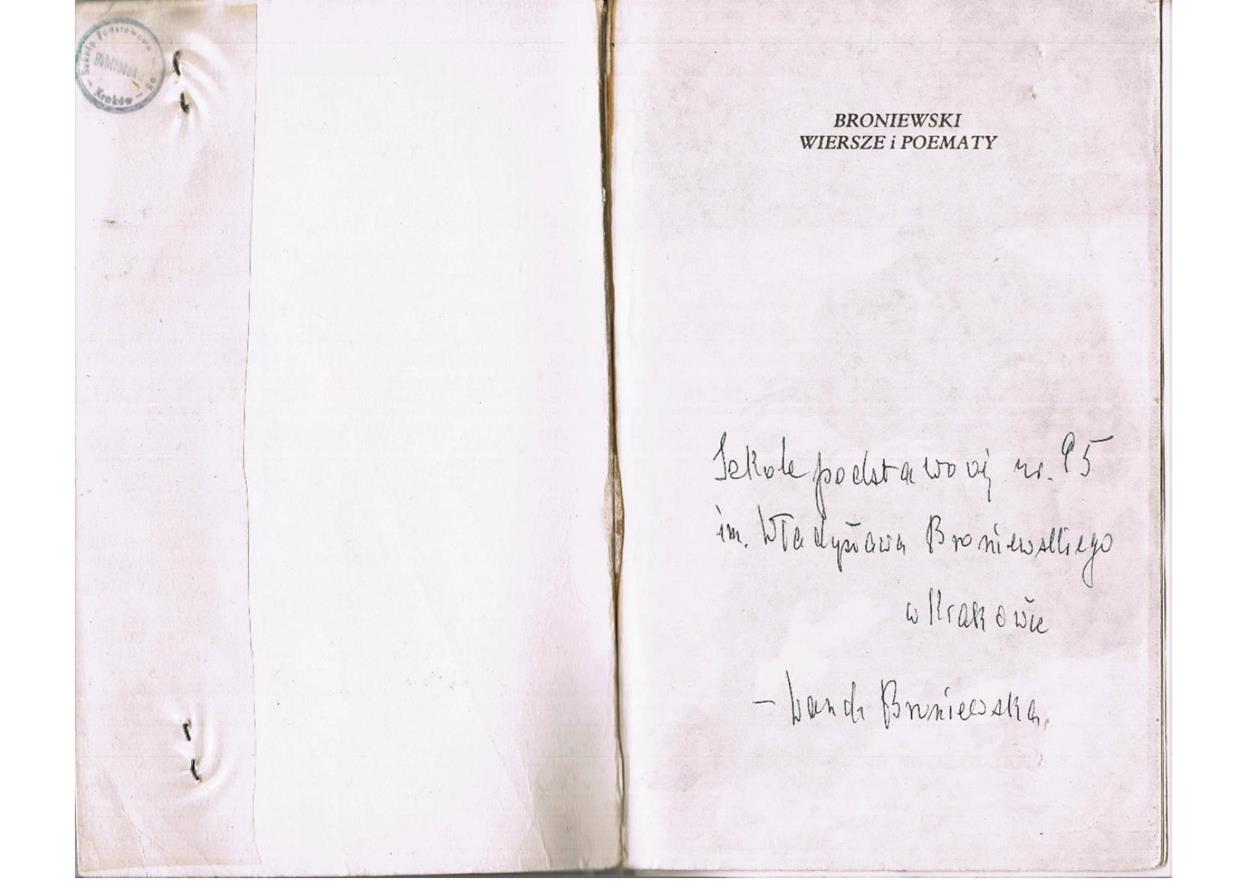 Szkoła Podstawowa
Biblioteka
Kraków
BRONIEWSKI
WIERSZE i POEMATY
Szkole podstawowej nr. 95
im. Władysława Broniewskiego
w Krakowie
– Wanda Broniewska